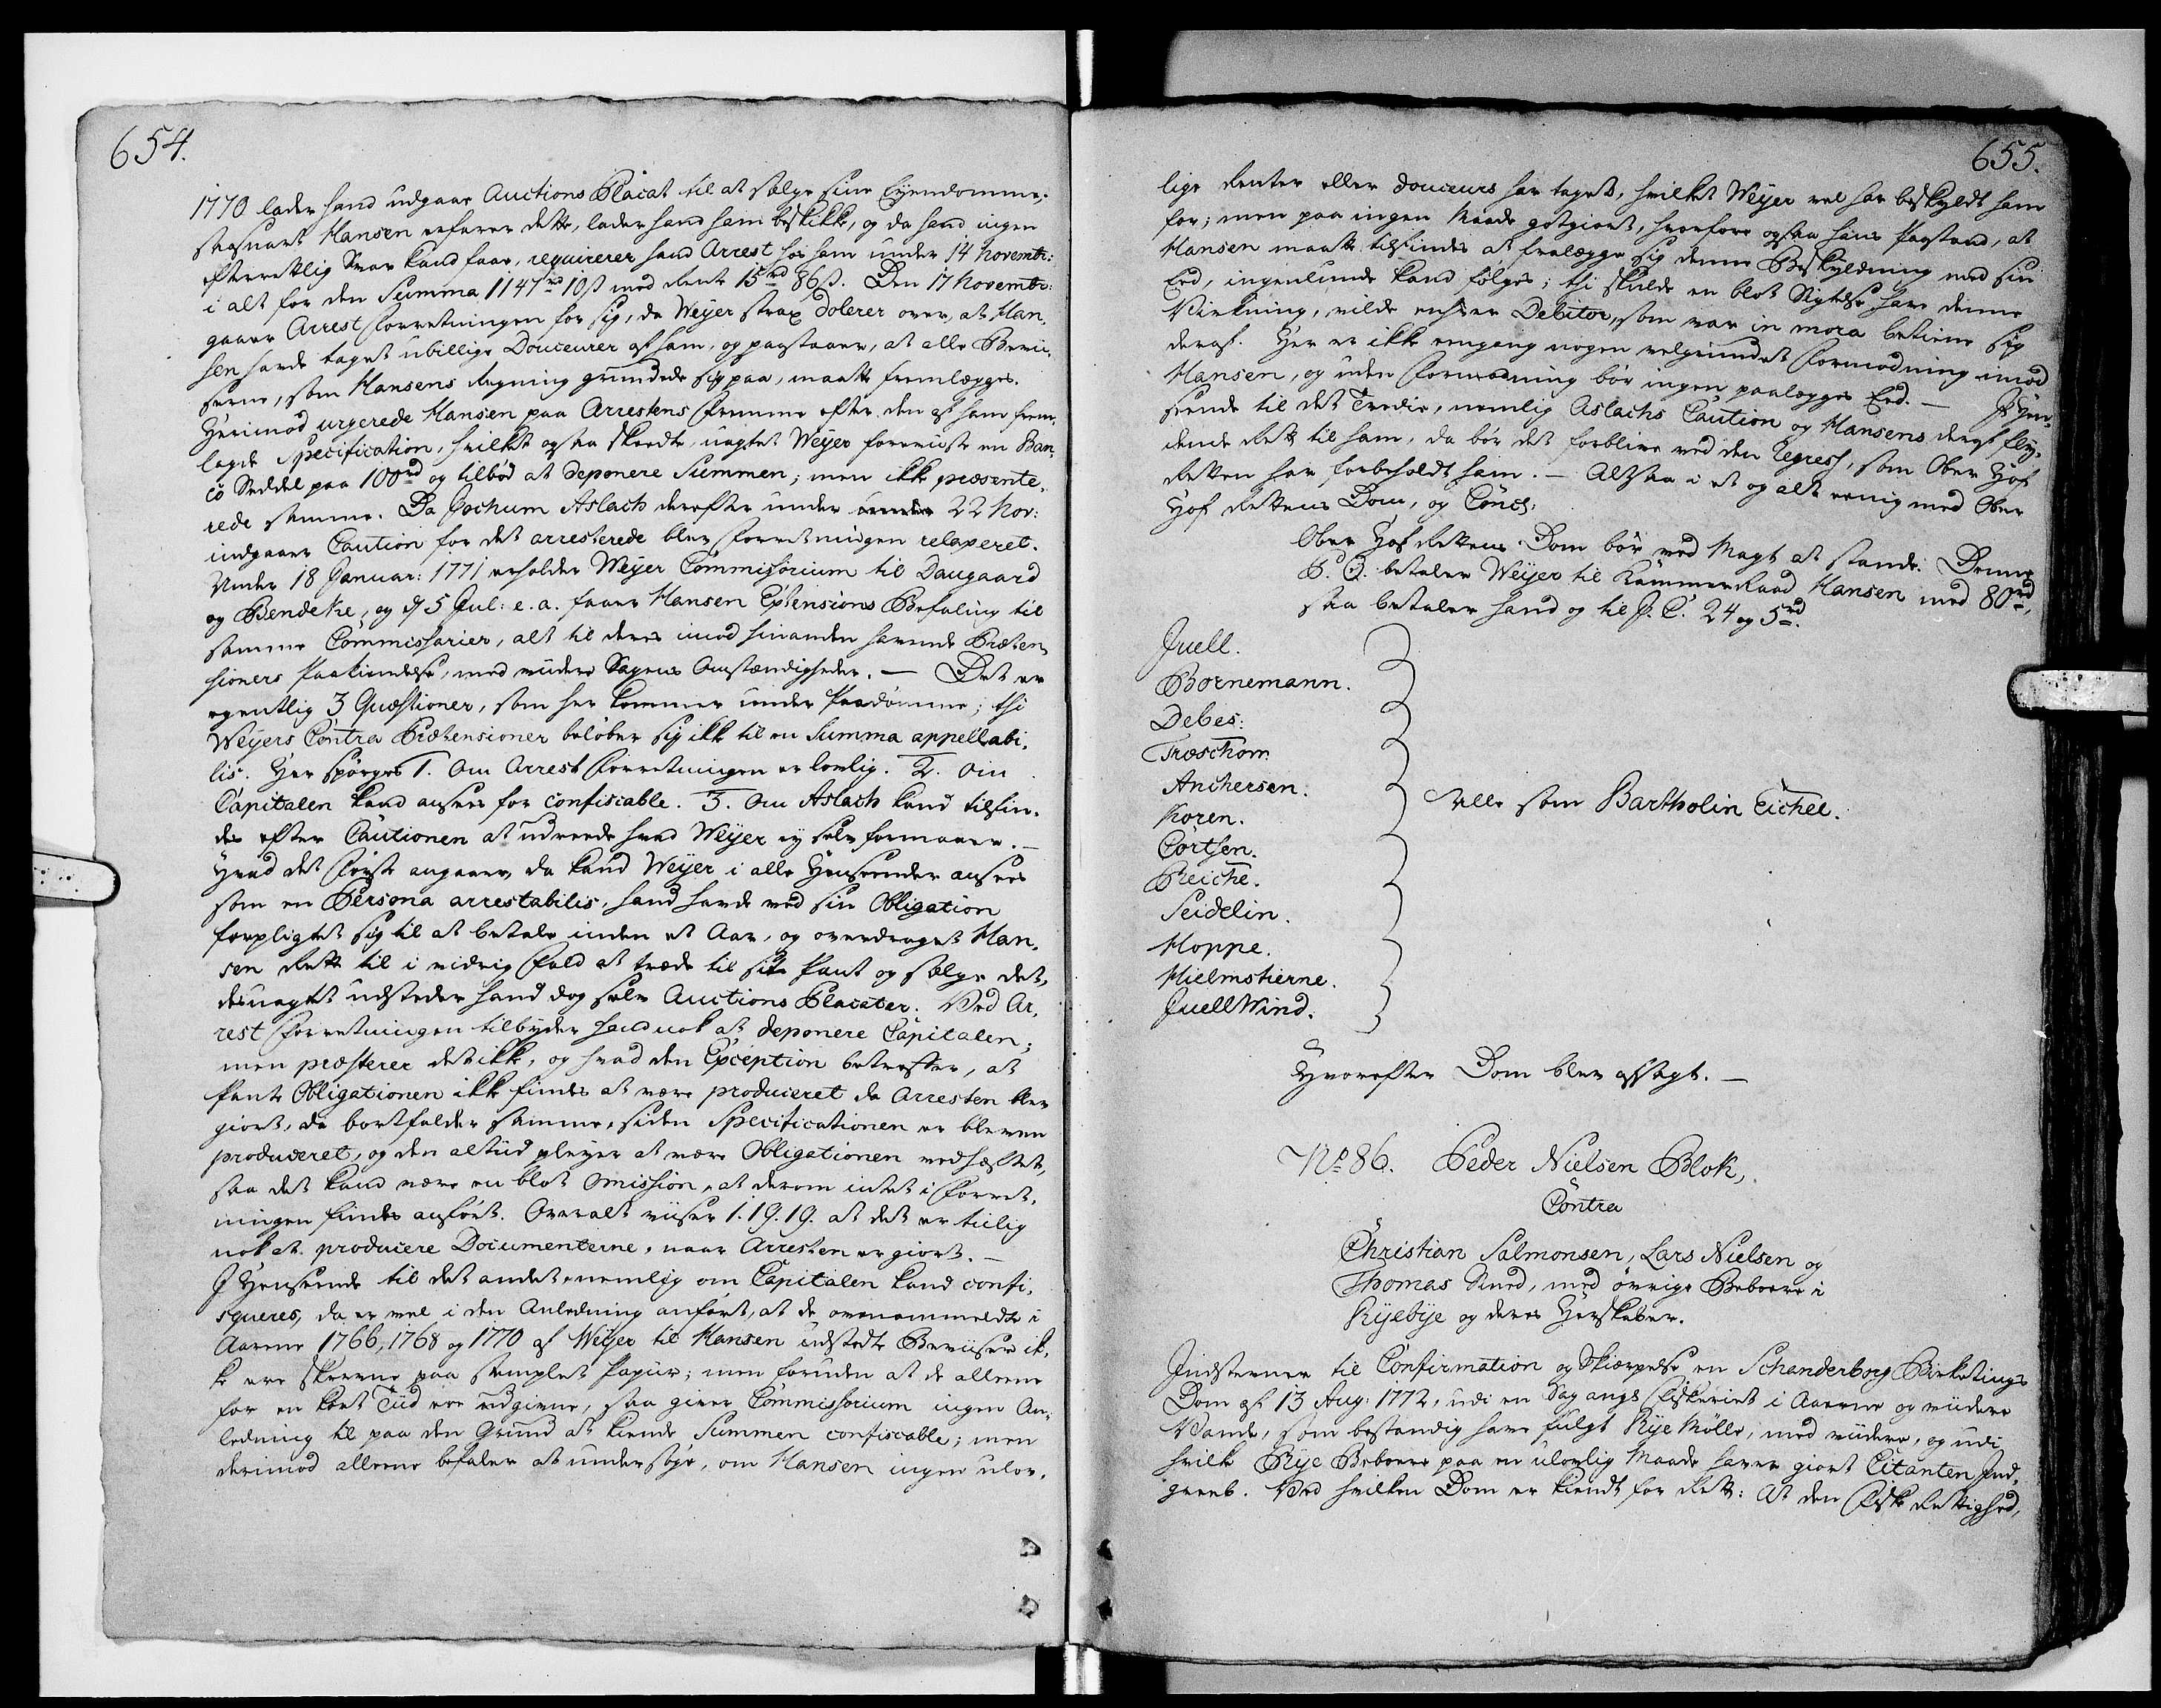 654.
1770 lader hand udgaae Auctions Placat til at sælge sine Eyendomme.
saasnart Hansen erfarer dette, lader hand ham beskikke, og da hand ingen
efterrettlig Svar kand faae, requirerer hand Arrest hos ham under 14 Novembr:
i alt for den Summa 1147rd 10ß med Rente 15rd 86ß. Den 17 Novembr:
gaaer Arrest Forretningen for sig, da Weÿer strax dolerer over, at Han-
sen havde taget ubillige Douceurer af ham, og paastaaer, at alle Bevii-
serne, som Hansens Regning grundede sig paa, maatte fremlægges.
Herimod urgerede Hansen paa Arrestens Fremme efter den af ham frem-
lagde Specification, hvilket ogsaa skeedte, uagtet Weÿer foreviiste en Ban-
co Seddel paa 100rd og tilbød at deponere Summen; men ikke præsente-
rede samme. Da Jochum Aslach derefter under 22 Nov:
indgaaer Caution for det arresterede blev Forretningen relaxeret.
Under 18 Januar: 1771 erholder Weÿer Commissorium til Daugaard
og Bendeke, og d 5 Jul: e. a. faaer Hansen Extensions Befaling til
samme Commissarier, alt til deres imod hinanden havende Præten-
sioners Paakiendelse, med viidere Sagens Omstændigheder. — Det er
egentlig 3 Quæstioner, som her kommer under Paadømme; thi
Weÿers Contra Prætensioner beløber sig ikke til en Summa appellabi-
lis. Her spørges 1. Om Arrest Forretningen er lovlig. 2. Om
Capitalen kand ansees for confiscable. 3. Om Aslach kand tilfin-
des efter Cautionen at udreede hvad Weÿer ej selv formaaer. —
Hvad det Første angaaer, da kand Weÿer i alle Henseender ansees
som en Persona arrestabilis, hand havde ved sin Obligation
forpligtet sig til at betale inden et Aar, og overdraget Han-
sen Rett til i vidrig Fald at træde til sit Pant og sælge det,
desuagtet udsteder hand dog selv Auctions Placater. Ved Ar-
rest Forretningen tilbyder hand nok at deponere Capitalen;
men præsterer det ikke, og hvad den Exception betreffer, at
Pante Obligationen ikke findes at være produceret da Arresten blev
giort, da bortfalder samme, siden Specificationen er bleven
produceret, og den altiid pleyer at være Obligationen vedhæftet,
saa det kand være en blot Omission, at derom intet i Forret-
ningen findes anført. Overalt viiser 1. 19. 19. at det er tiilig
nok at producere Documenterne, naar Arresten er giort. —
I Henseende til det andet, nemlig om Capitalen kand confi-
squeres, da er vel i den Anledning anført, at de ovenommeldte i
Aarene 1766, 1768 og 1770 af Weÿer til Hansen udstedte Beviiser ik-
ke ere skrevne paa stemplet Papiir; men foruden at de alleene
for en kort Tiid ere udgivne, saa giver Commissorium ingen An-
ledning til paa den Grund at kiende Summen confiscable; men
derimod alleene befaler at undersøge, om Hansen ingen ulov-
655.
lige Renter eller douceurs har taget, hvilket Weÿer vel har beskyldt ham
for; men paa ingen Maade gotgiort, hvorfore ogsaa hans Paastand, at
Hansen maatte tilfindes at fralægge sig denne Beskyldning med sin
Eed, ingenlunde kand følges; thi skulde en blot Sigtelse have denne
Virkning, vilde enhver Debitor, som var in mora betiene sig
deraf. Her er ikke eengang nogen velgrundet Formodning imod
Hansen, og uden Formodning bør ingen paalægges Eed. — I Hen-
seende til det Tredie, nemlig Aslachs Caution og Hansens deraf flÿ-
dende Rett til ham, da bør det forblive ved den Regress, som Ober Hof
Retten har forbeholdt ham. — Altsaa i et og alt eenig med Ober
Hof Rettens Dom, og Concl:
Ober Hof Rettens Dom bør ved Magt at stande. Denne
P. O. betaler Weÿer til KammerRaad Hansen med 80rd,
saa betaler hand og til J. C. 24 og 5rd.
Juell.
Bornemann.
Debes.
Træschow.
Anchersen.
Koren.
Cortsen.
Reiche.
Seidelin.
Hoppe.
Hielmstierne.
Juell Wind.
Alle som Bartholin Eichel.
Hvorefter Dom blev afsagt. —
No 86. Peder Nielsen Blok,
Contra
Christian Salmonsen, Lars Nielsen og
Thomas Smed, med øvrige Beboere i
Rÿebÿe og deres Herskaber.
Indstevner til Confirmation og Skiærpelse en Schanderborg Birketings
Dom af 13 Aug: 1772, udi en Sag angl Fiskeriet i Aaerne og viidere
Vande, som bestandig have fulgt Rÿe Mølle, med viidere, og udi
hvilke Rÿe Beboere paa en ulovlig Maade haver giort Citanten Ind-
greeb. Ved hvilken Dom er kiendt for Rett: At den Fiske Rettighed,